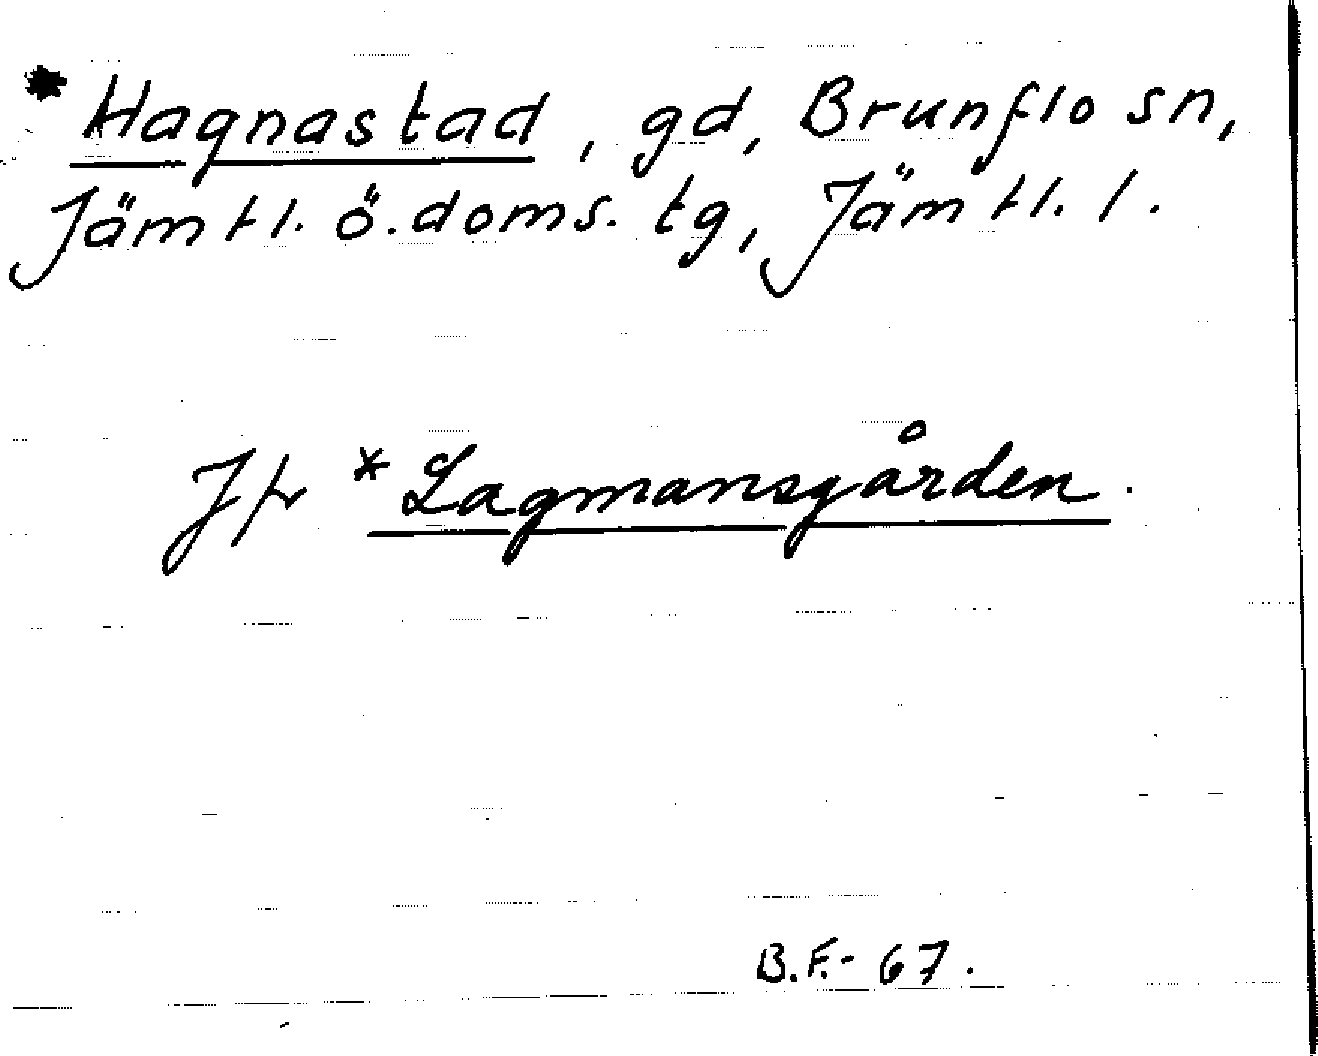 * Hagnastad, gd, Brunflo sn,
Jämtl. ö. doms. tg, Jämtl. l.
Jfr * Lagmansgården.
B.F.- 67.